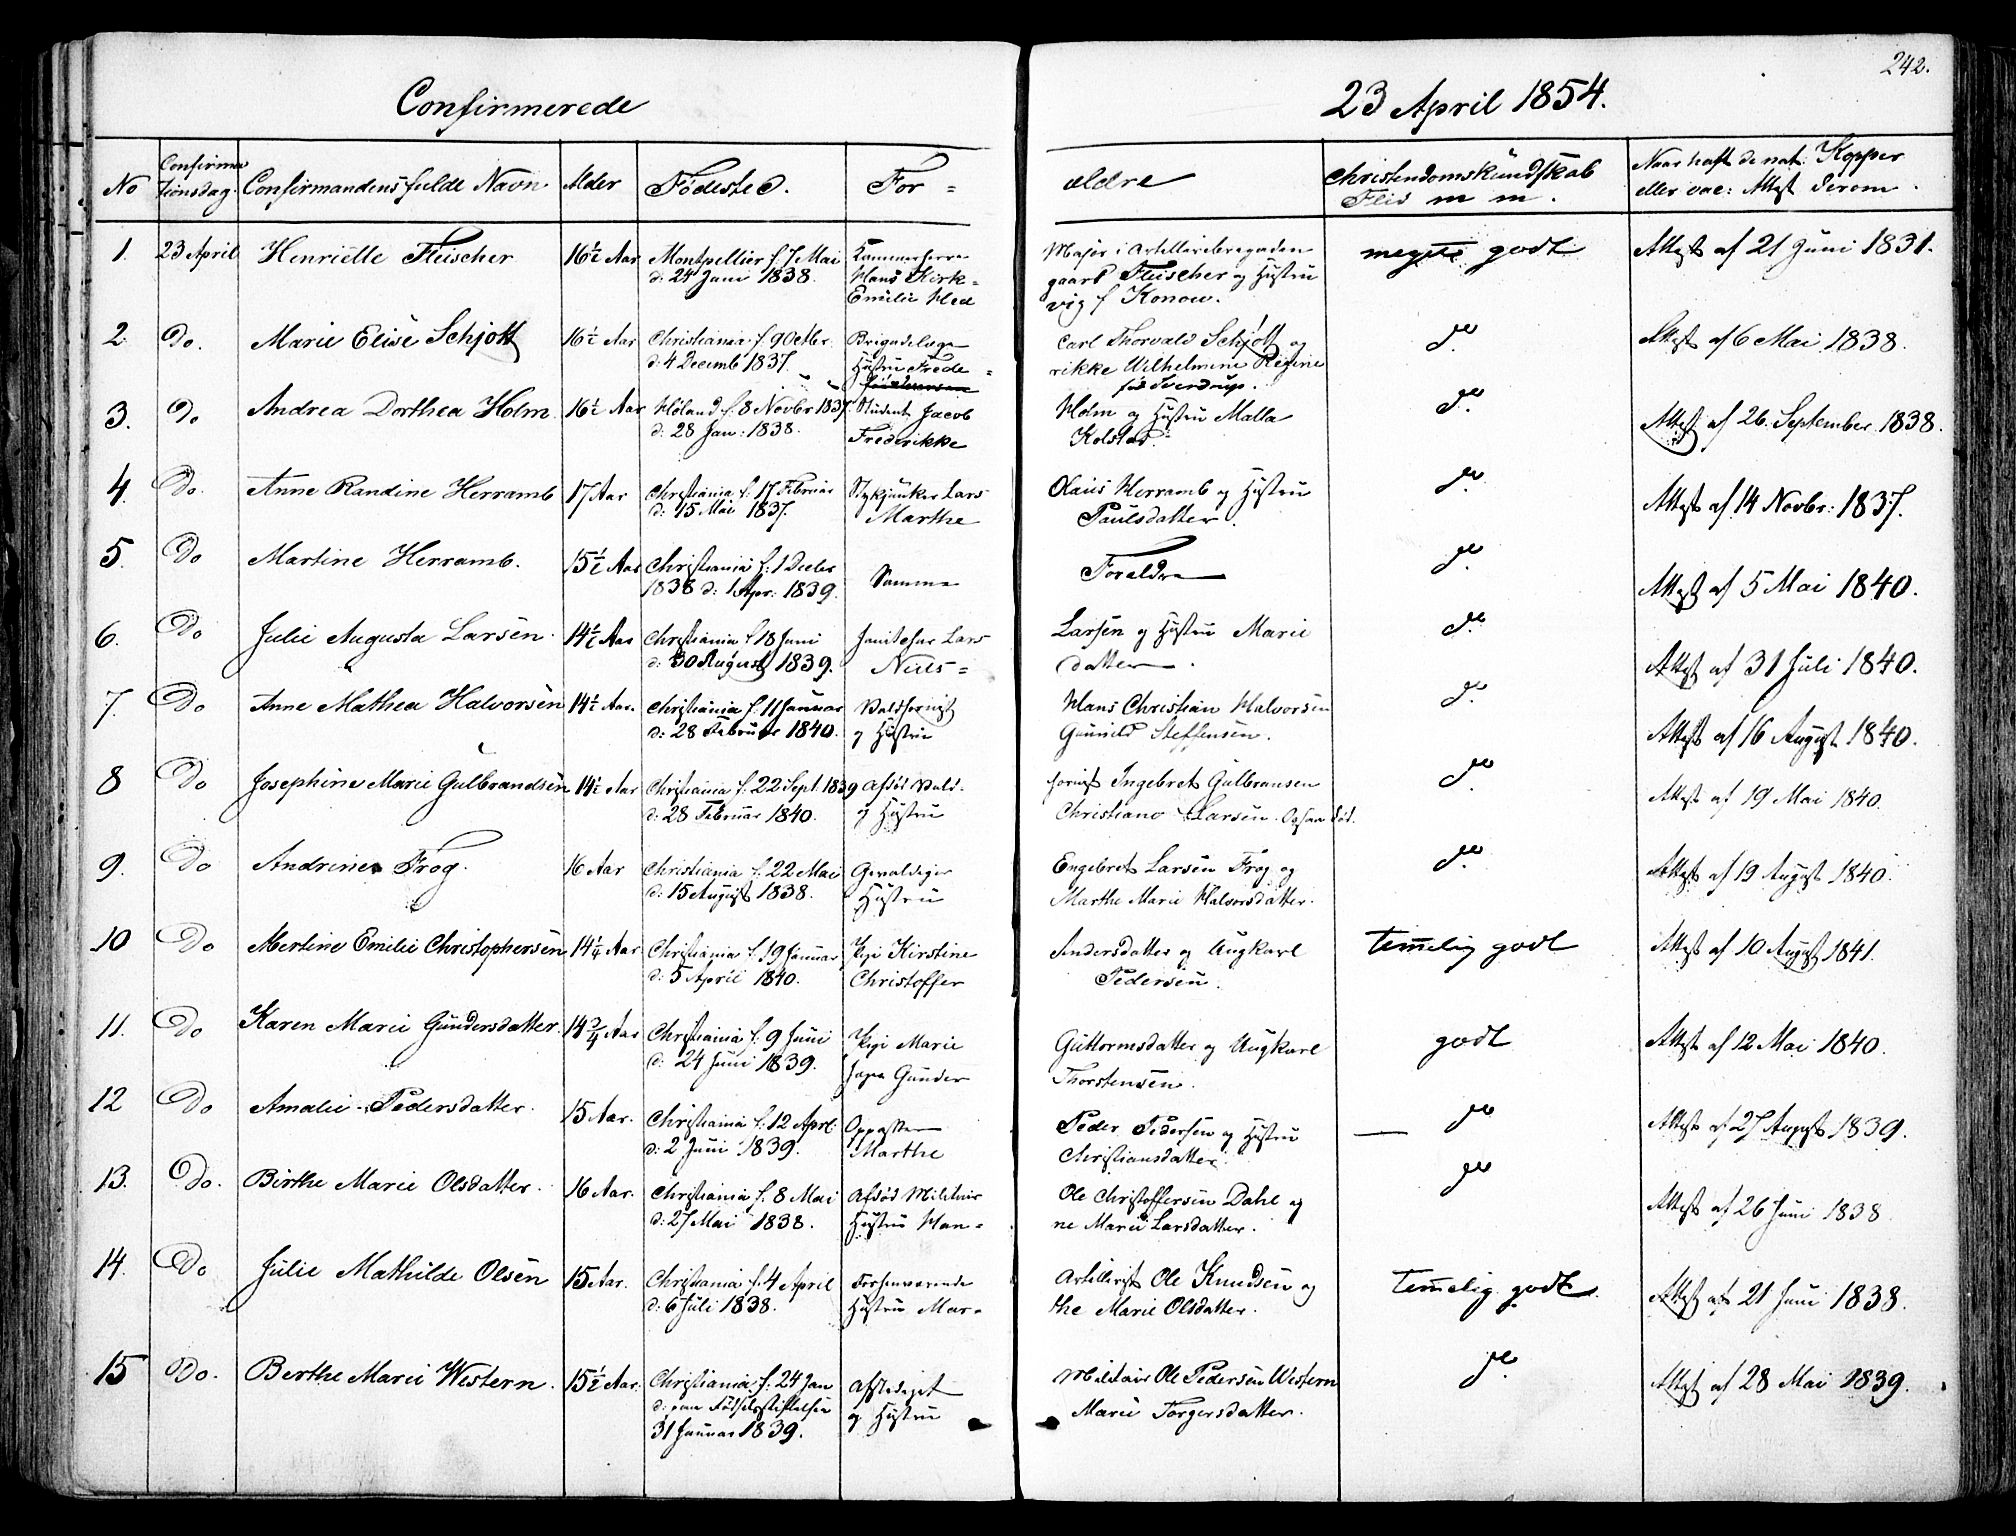 242.
Confirmerede 23 April 1854.
No Confirmationsdag. Confirmandens fulde Navn Alder Födested. For = ældre Christendomskundskab Flid m m. Naar haft de nat: Kopper eller vac: Attest derom.
1. 23 April Henriette Fleischer 16½ Aar Montpellier f. 7 Mai Kammerherre Major i Artilleribrigaden meget godt Attest af 21 Juni 1831.
d: 24 Juni 1838. Hans Kirk= gaard Fleischer og Hustru
Emilie Hed vig f Konow.
2. Do. Marie Elise Schjött 16½ Aar Christiania f. 9 Octbr. Brigadelæge Carl Thorvald Schjött og do. Attest af 6 Mai 1838.
d: 4 Decemb 1837. Hustru Frede= rikke Wilhelmine Regine
föd Sverdrup.
3. Do Andrea Dorthea Holm 16½ Aar Höland f: 8 Novbr 1837. Student Jacob Holm og Hustru Malla do. Attest af 26. September 1838.
d: 28 Jan: 1838. Frederikke Kolstad.
4. Do. Anne Randine Herramb 17 Aar Christiania f. 17 Februar Stykjunker Lars Olaus Herramb og Hustru do. Attest af 14 Novbr: 1837.
d: 15 Mai 1837. Marthe Paulsdatter.
5. Do Martine Herramb. 15½ Aar Christiania f. 1 Decbr Samme Forældre do. Attest af 5 Mai 1840.
1838 d: 1 Apr: 1839.
6. Do Julie Augusta Larsen. 14½ Aar Christiania f 18 Juni Janitshar Lars Larsen og Hustru Marie do. Attest af 31 Juli 1840.
d: 30 August 1839. Niels= datter.
7. Do Anne Mathea Halvorsen 14½ Aar. Christiania f. 11 Januar Valdhornist Hans Christian Halvorsen do. Attest af 16 August 1840.
d: 28 Februar 1840. og Hustru Gunild Steffensen.
8 Do Josephine Marie Gulbrandsen 14½ Aar Christiania f: 22 Sept. 1839 Afdöd Vald- hornist Ingebret Gulbransen do. Attest af 19 Mai 1840.
d: 28 Februar 1840. og Hustru Christiane Larsen.
9. Do Andrine Frog. 16 Aar Christiania f. 22 Mai Gevaldiger Engebret Larsen Frog og do. Attest af 19 August 1840.
d: 15 August 1838. Hustru Marthe Marie Halvorsdatter.
10 Do Mertine Emilie Christophersen 14¼ Aar Christiania f. 19 Januar Pige Kirstine Andersdatter og Ungkarl temmelig godt Attest af 10 August 1841.
d: 5 April 1840. Christoffer Pedersen.
11. Do Karen Marie Gundersdatter. 14¾ Aar Christiania f. 9 Juni Pige Marie Guttormsdatter og Ungkarl godt Attest af 12 Mai 1840.
d: 24 Juni 1839. Gunder Thorstensen.
12 Do Amalie Pedersdatter. 15 Aar. Christiania f. 12 Aprl Oppasser Peder Pedersen og Hustru do Attest af 27 August 1839.
d: 2 Juni 1839. Marthe Christiansdatter.
13. Do. Birthe Marie Olsdatter. 16 Aar. Christiania f. 8 Mai Afdöd Militair Ole Christoffersen Dahl og do Attest af 26 Juni 1838
d: 27 Mai 1838. Hustru Han= ne Marie Larsdatter.
14. Do Julie Mathilde Olsen 15 Aar. Christiania f. 4 April Forhenværende Artillerist Ole Knudsen og temmelig godt. Attest af 21 Juni 1838.
d: 6 Juli 1838. Hustru Mar= the Marie Olsdatter.
15 Do. Berthe Marie Western. 15½ Aar. Christiania f: 24 Jan Afskediget Militair Ole Pedersen Western do. Attest af 28 Mai 1839.
d: paa Födselsstiftelsen og Hustru Marie Torgersdatter.
31 Januar 1839.